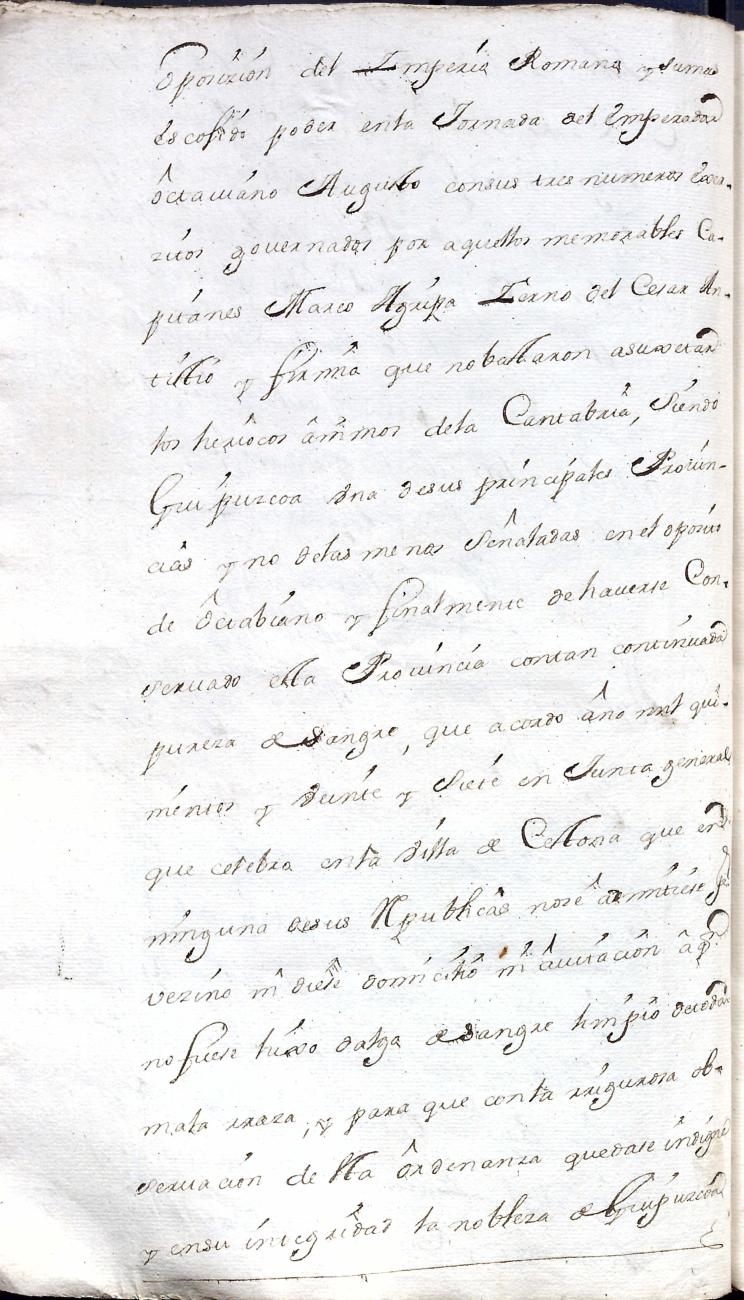 oposizion del Imperio Romano y sumas
escojido poder enla Jornada del Emperador
octaviano Augusto consus tres numeros exer-
zitos governados por aquellos memorables Ca-
pitanes Marco Agripa Ierno del Cesar An-
tistio y firmio que nobastaron asuxetar
los heriocos animos dela Cantabria, siendo
Guipuzcoa una desus principales Provin-
cias y no delas menos señaladas enel oposito
de Octabiano y finalmente de haverse Con-
servado esta Provincia contan continuada
pureza de sangre, que acordo año mil qui-
nientos y veinte y siete en Junta general
que celebra enla villa de Cestona que en
ninguna desus Republicas nose admitiese por
vezino ni diese domicilio ni avitacion a qn
no fuese hixo dalgo de sangre limpio de toda
mala rraza, y para que conla rrigurosa ob-
servacion de sta ordenanza quedase indigne
y ensu integridad la nobleza de Guipuzcoa